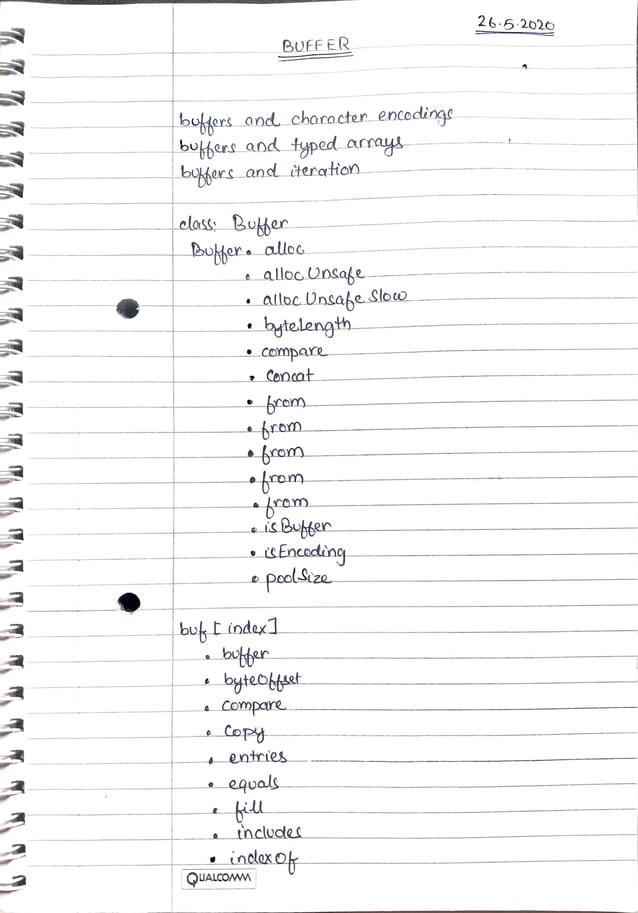 26.5.2020
BUFFER
buffers and character encodings
buffers and typed arrays
buffers and iteration
class: Buffer
Buffer. alloc
. allocUnsafe
. allocUnsafeSlow
. byteLength
. compare
. concat
. from
. from
. from
. from
. from
. isBuffer
. isEncoding
. poolSize
buf[index]
. buffer
. byteOffset
. compare
. copy
. entries
. equals
. fill
. includes
. indexOf
QUALCOMM